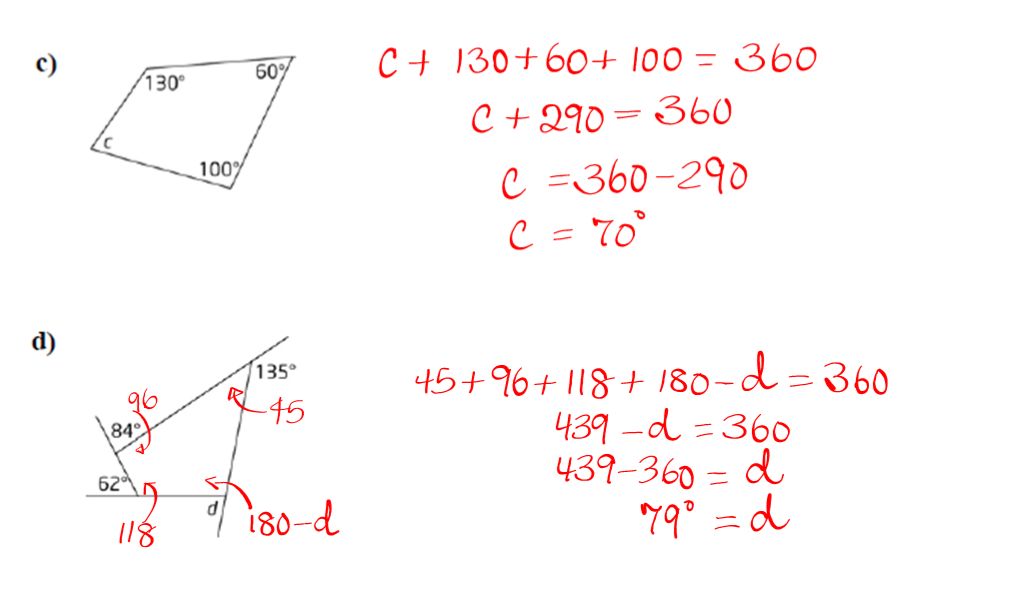 c)
130°
60°
c
100°
C + 130 + 60 + 100 = 360
C + 290 = 360
C = 360 - 290
C = 70°
d)
135°
96
45
84°
62°
d
180-d
118
45 + 96 + 118 + 180 - d = 360
439 - d = 360
439 - 360 = d
79° = d